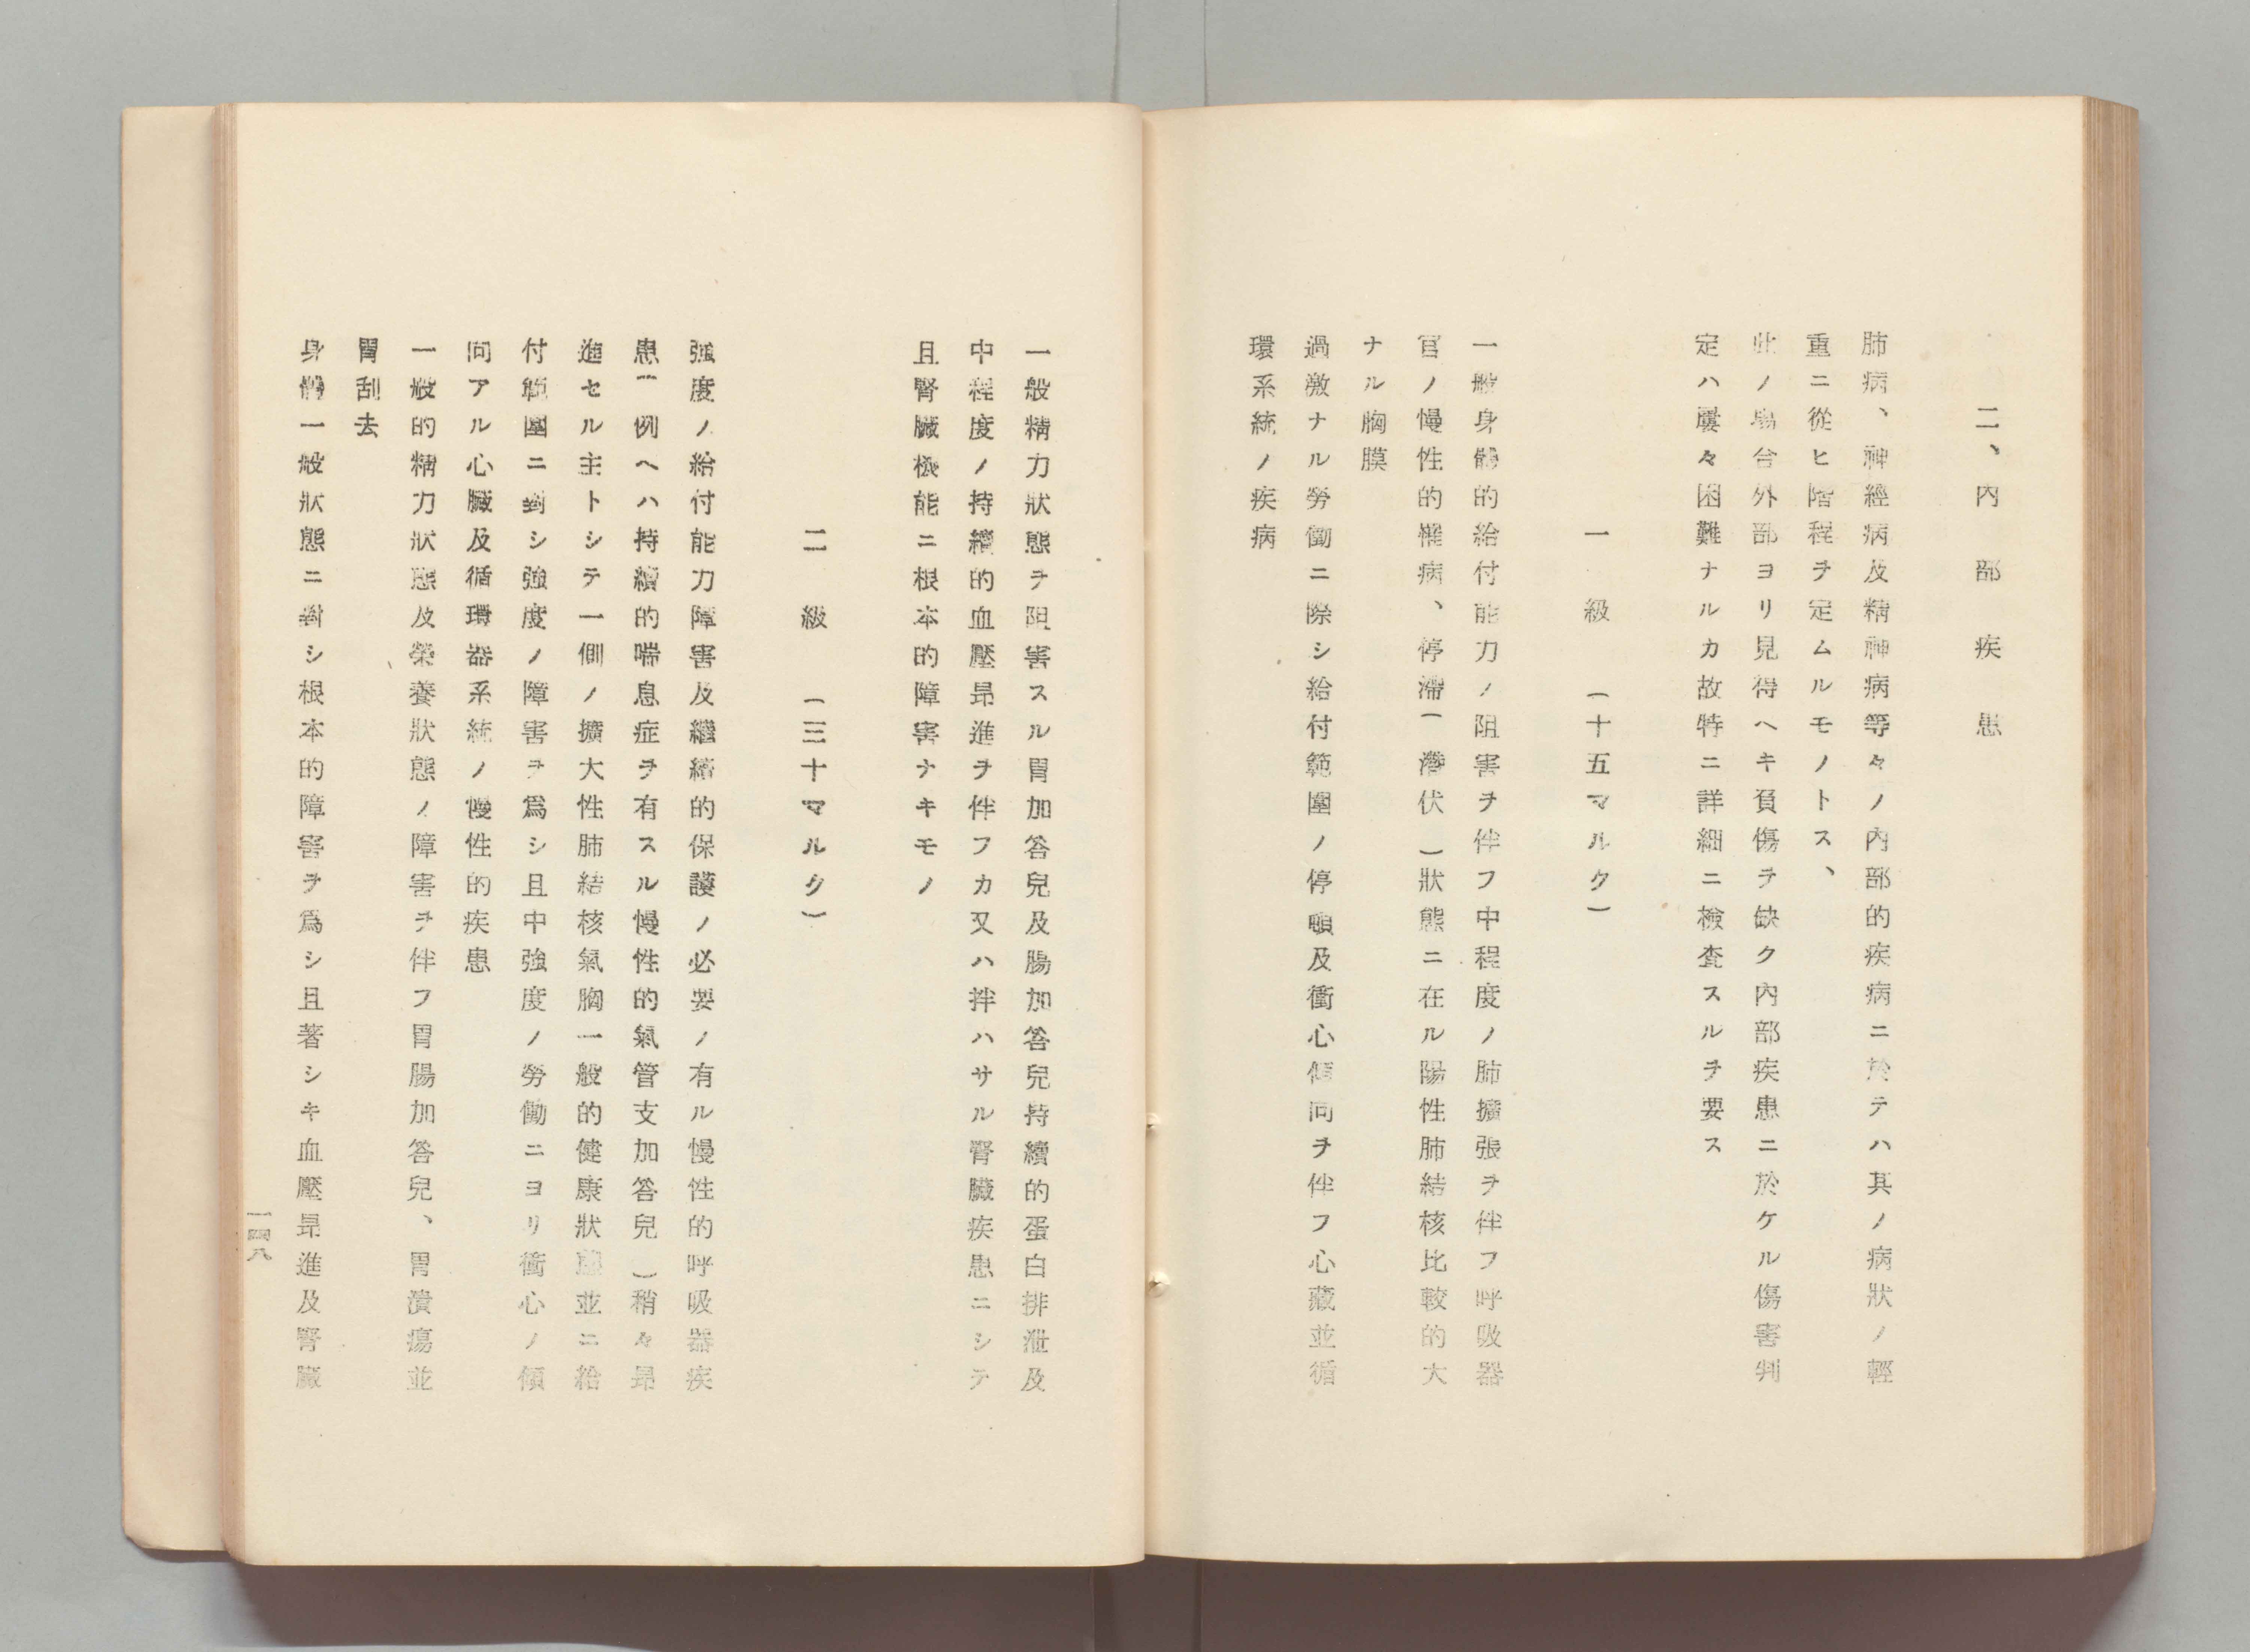 二、內部疾患
肺病、神經病及精神病等々ノ內部的疾病ニ於テハ其ノ病狀ノ輕
重ニ從ヒ階程ヲ定ムルモノトス、
此ノ場合外部ヨリ見得ヘキ負傷ヲ缺ク內部疾患ニ於ケル傷害判
定ハ屢々困難ナルカ故特ニ詳細ニ檢査スルヲ要ス
一級（十五マルク）
一般身體的給付能力ノ阻害ヲ伴フ中程度ノ肺擴張ヲ伴フ呼吸器
官ノ慢性的罹病、停滯（潛伏）狀態ニ在ル陽性肺結核比較的大
ナル胸膜
過激ナル勞働ニ際シ給付範圍ノ停頓及衝心傾向ヲ伴フ心藏並循
環系統ノ疾病
一般精力狀態ヲ阻害スル胃加答兒及腸加答兒持續的蛋白排泄及
中程度ノ持續的血壓昻進ヲ伴フカ又ハ拌ハサル腎臟疾患ニシテ
且腎臟機能ニ根本的障害ナキモノ
二級（三十マルク）
强度ノ給付能力障害及繼續的保護ノ必要ノ有ル慢性的呼吸器疾
患（例ヘハ持續的喘息症ヲ有スル慢性的氣管支加答兒）稍々昻
進セル主トシテ一側ノ擴大性肺結核氣胸一般的健康狀態並ニ給
付範圍ニ對シ强度ノ障害ヲ爲シ且中强度ノ勞働ニヨリ衝心ノ傾
向アル心臟及循環器系統ノ慢性的疾患
一般的精力狀態及榮養狀態ノ障害ヲ伴フ胃腸加答兒、胃潰瘍並
胃刮去
身體一般狀態ニ對シ根本的障害ヲ爲シ且著シキ血壓昻進及腎臟
一四八